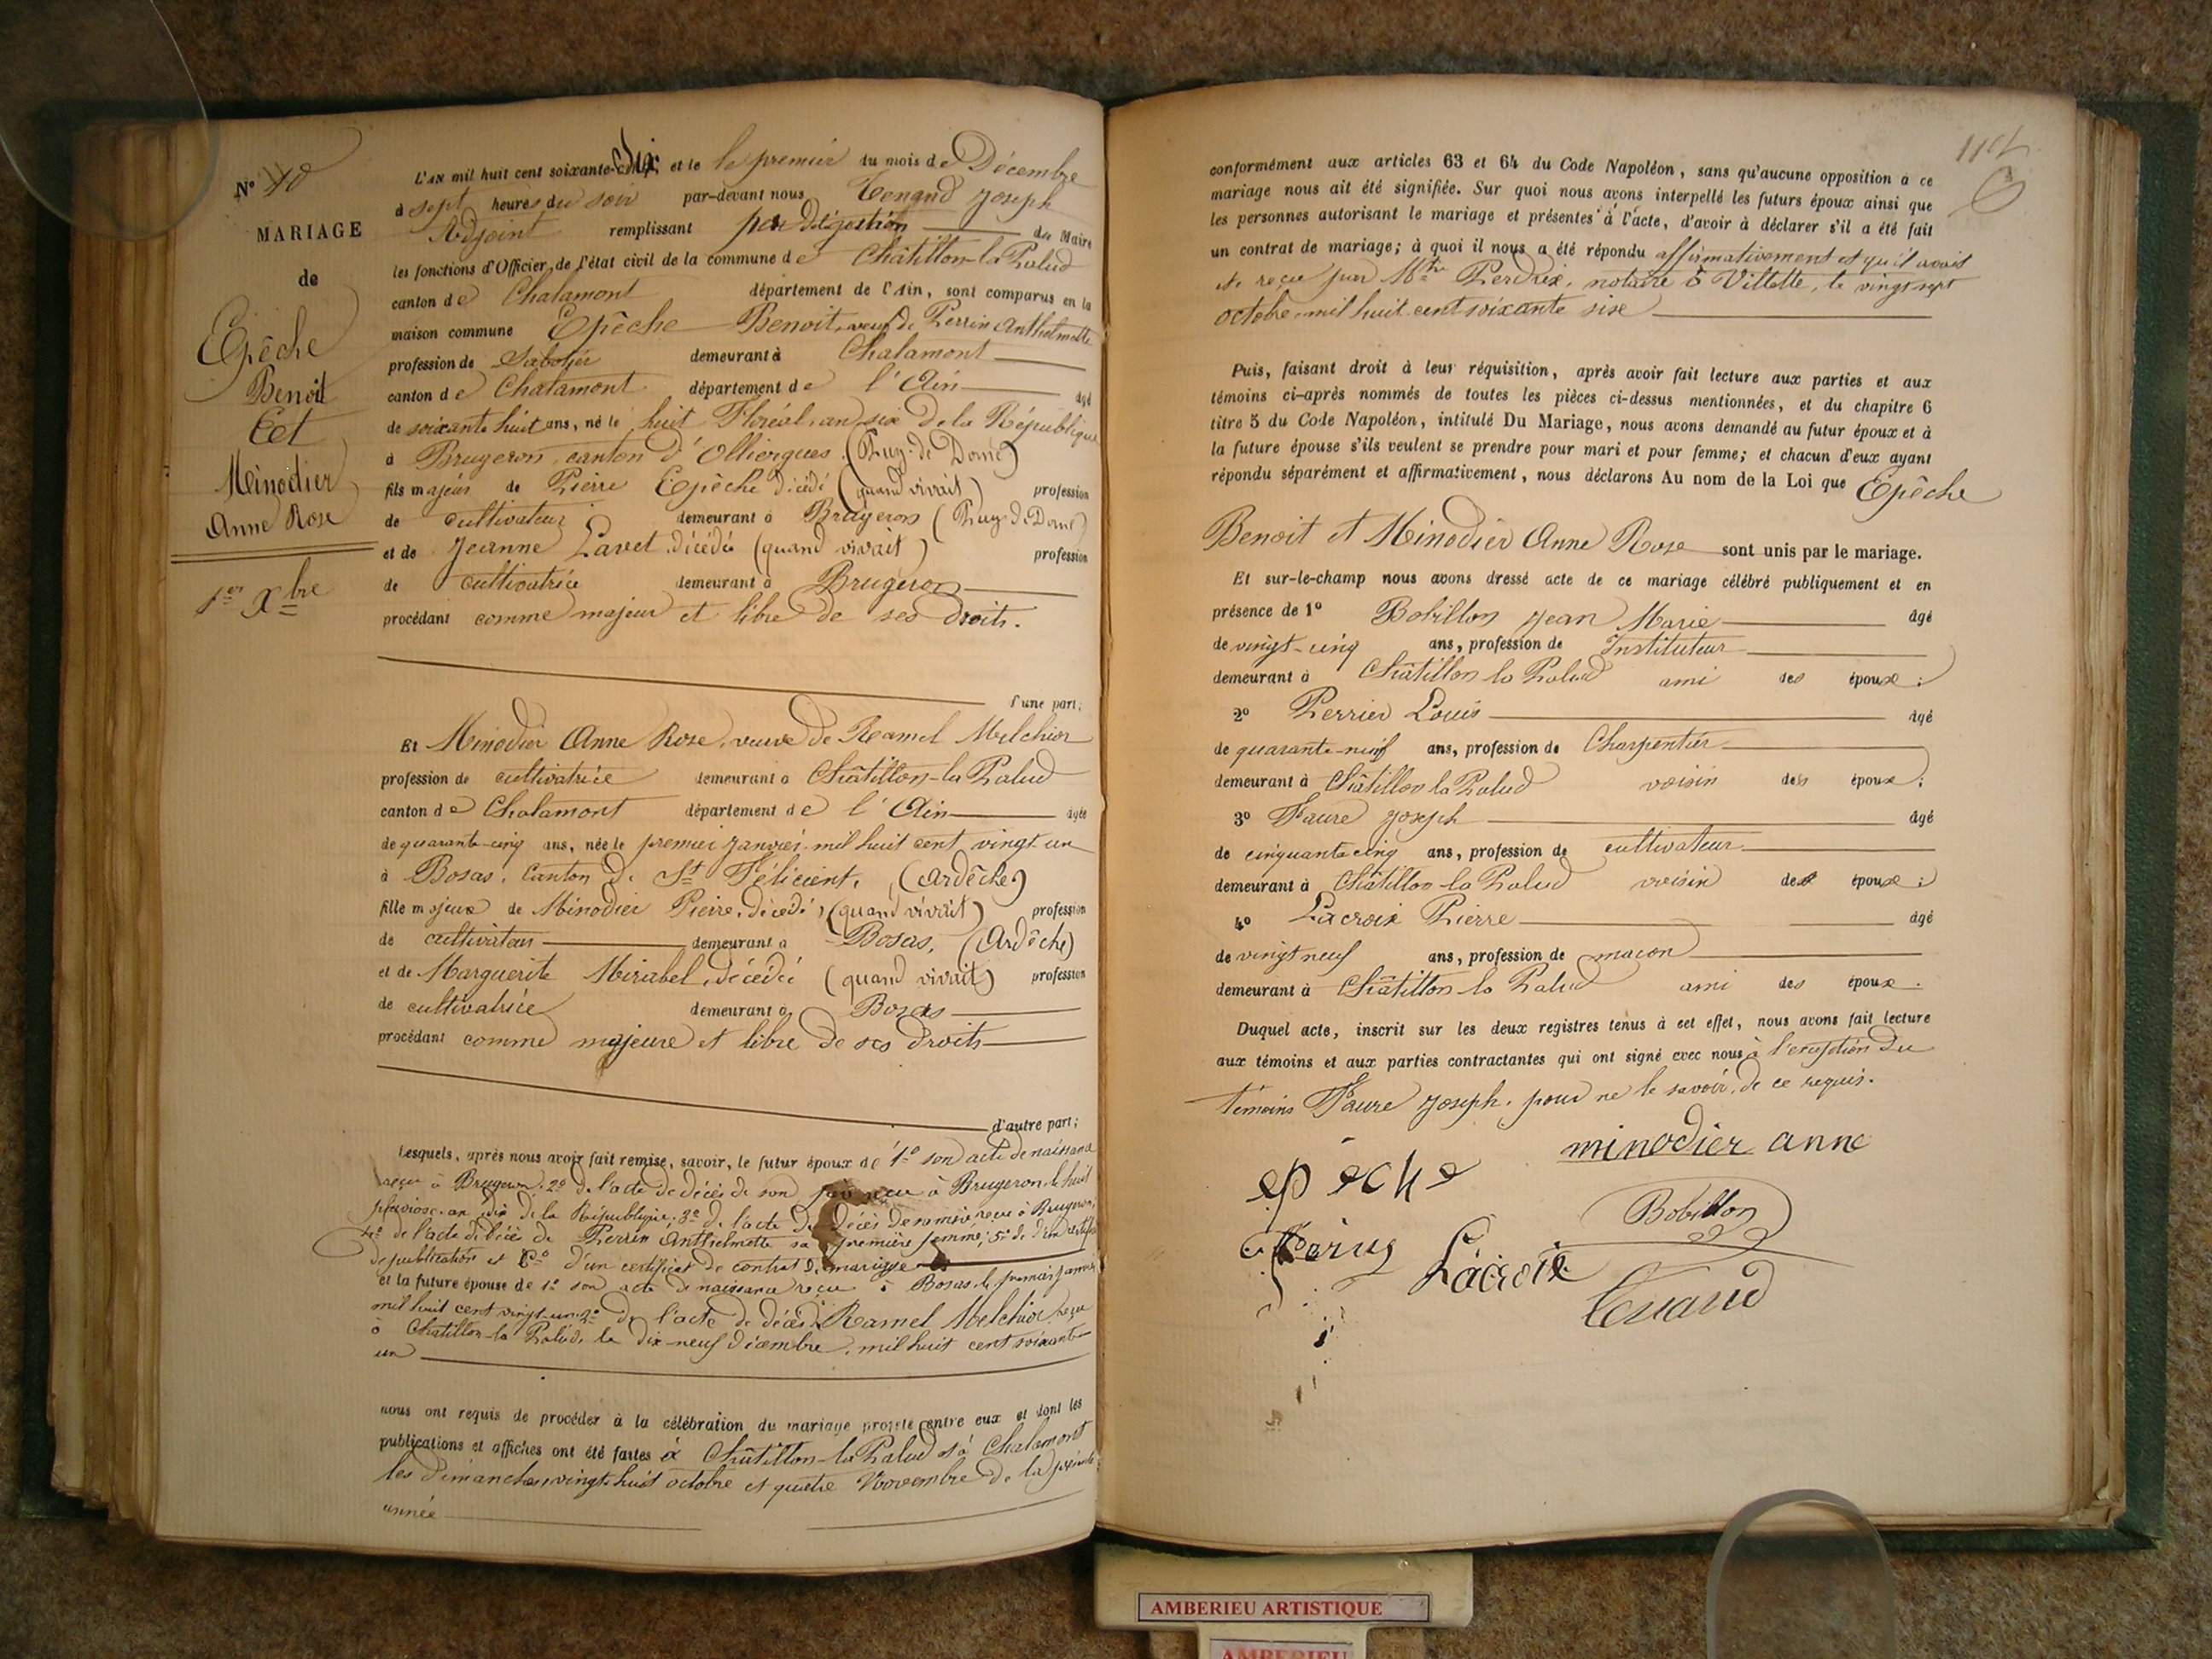 N° 10
MARIAGE
de
Epêche
Benoit
Et
Minodier
Anne Rose
1er Xbre
L'AN mil huit cent soixante-six et le le premier du mois de Décembre
à sept heures du soir par-devant nous Tenand Joseph
Adjoint remplissant par délégation du Maire
les fonctions d'Officier de l'état civil de la commune de Châtillon-la-Palud
canton de Chalamont département de l'Ain, sont comparus en la
maison commune Epêche Benoit, veuf de Perrin Anthelmette
profession de Sabotier demeurant à Chalamont
canton de Chalamont département de l'Ain âgé
de soixante huit ans, né le huit Floréal, an six de la République
à Brugeron, canton d'Olliergues, (Puy-de Dome)
fils majeur de Pierre Epêche décédé (quand vivait) profession
de cultivateur demeurant à Brugeron (Puy-de Dome)
et de Jeanne Lavet, décédée (quand vivait) profession
de cultivatrice demeurant à Brugeron
procédant comme majeur et libre de ses droits.
d'une part;
Et Minodier Anne Rose, veuve de Ramel Melchior
profession de cultivatrice demeurant à Châtillon-la-Palud
canton de Chalamont département de l'Ain âgée
de quarante-cinq ans, née le premier Janvier mil huit cent vingt-un
à Bosas, Canton de St Félicient, (Ardêche)
fille majeure de Minodier Pierre, décédé, (quand vivait) profession
de cultivateur demeurant à Bosas, (Ardêche)
et de Marguerite Mirabel, décédée (quand vivait) profession
de cultivatrice demeurant à Bosas
procédant comme majeure et libre de ses droits
d'autre part;
Lesquels, après nous avoir fait remise, savoir, le futur époux de 1° son acte de naissance
reçu à Brugeron, 2° de l'acte de décès de son père reçu à Brugeron le huit
pluviose an dix de la République, 3° de l'acte de décès de sa mère reçu à Brugeron,
4° de l'acte de décès de Perrin Anthelmette sa première femme, 5° de d'un certificat
de publication et 6° d'un certificat de contrat de mariage
et la future épouse de 1° son acte de naissance reçu à Bosas, le premier janvier
mil huit cent vingt-un 2° de l'acte de décès de Ramel Melchior, reçu
à Châtillon-la Palud, le dix-neuf décembre, mil huit cent soixante
un
nous ont requis de procéder à la célébration du mariage projeté entre eux et dont les
publications et affiches ont été faites à Châtillon-la Palud et à Chalamont
les dimanches vingt-huit octobre et quatre Novembre de la présente
année
114
conformément aux articles 63 et 64 du Code Napoléon, sans qu'aucune opposition à ce
mariage nous ait été signifiée. Sur quoi nous avons interpellé les futurs époux ainsi que
les personnes autorisant le mariage et présentes à l'acte, d'avoir à déclarer s'il a été fait
un contrat de mariage; à quoi il nous a été répondu affirmativement et qu'il avait
été reçu par Mtre Perdrix, notaire à Villette, le vingt sept
octobre mil huit cent soixante six
Puis, faisant droit à leur réquisition, après avoir fait lecture aux parties et aux
témoins ci-après nommés de toutes les pièces ci-dessus mentionnées, et du chapitre 6
titre 5 du Code Napoléon, intitulé Du Mariage, nous avons demandé au futur époux et à
la future épouse s'ils veulent se prendre pour mari et pour femme; et chacun d'eux ayant
répondu séparément et affirmativement, nous déclarons Au nom de la Loi que Epêche
Benoit et Minodier Anne Rose sont unis par le mariage.
Et sur-le-champ nous avons dressé acte de ce mariage célébré publiquement et en
présence de 1° Bobillon Jean Marie âgé
de vingt-cinq ans, profession de Instituteur
demeurant à Châtillon la Palud ami des époux;
2° Perrier Louis âgé
de quarante-neuf ans, profession de Charpentier
demeurant à Châtillon la Palud voisin des époux;
3° Faure Joseph âgé
de cinquante cinq ans, profession de cultivateur
demeurant à Châtillon-la Palud voisin des époux;
4° Lacroix Pierre âgé
de vingt neuf ans, profession de maçon
demeurant à Châtillon-la Palud ami des époux.
Duquel acte, inscrit sur les deux registres tenus à cet effet, nous avons fait lecture
aux témoins et aux parties contractantes qui ont signé avec nous à l'exception du
témoins Faure Joseph, pour ne le savoir, de ce requis.
minodier anne
epeche
Bobillon
Lacroix
Tenand
AMBERIEU ARTISTIQUE
AMBERIEU